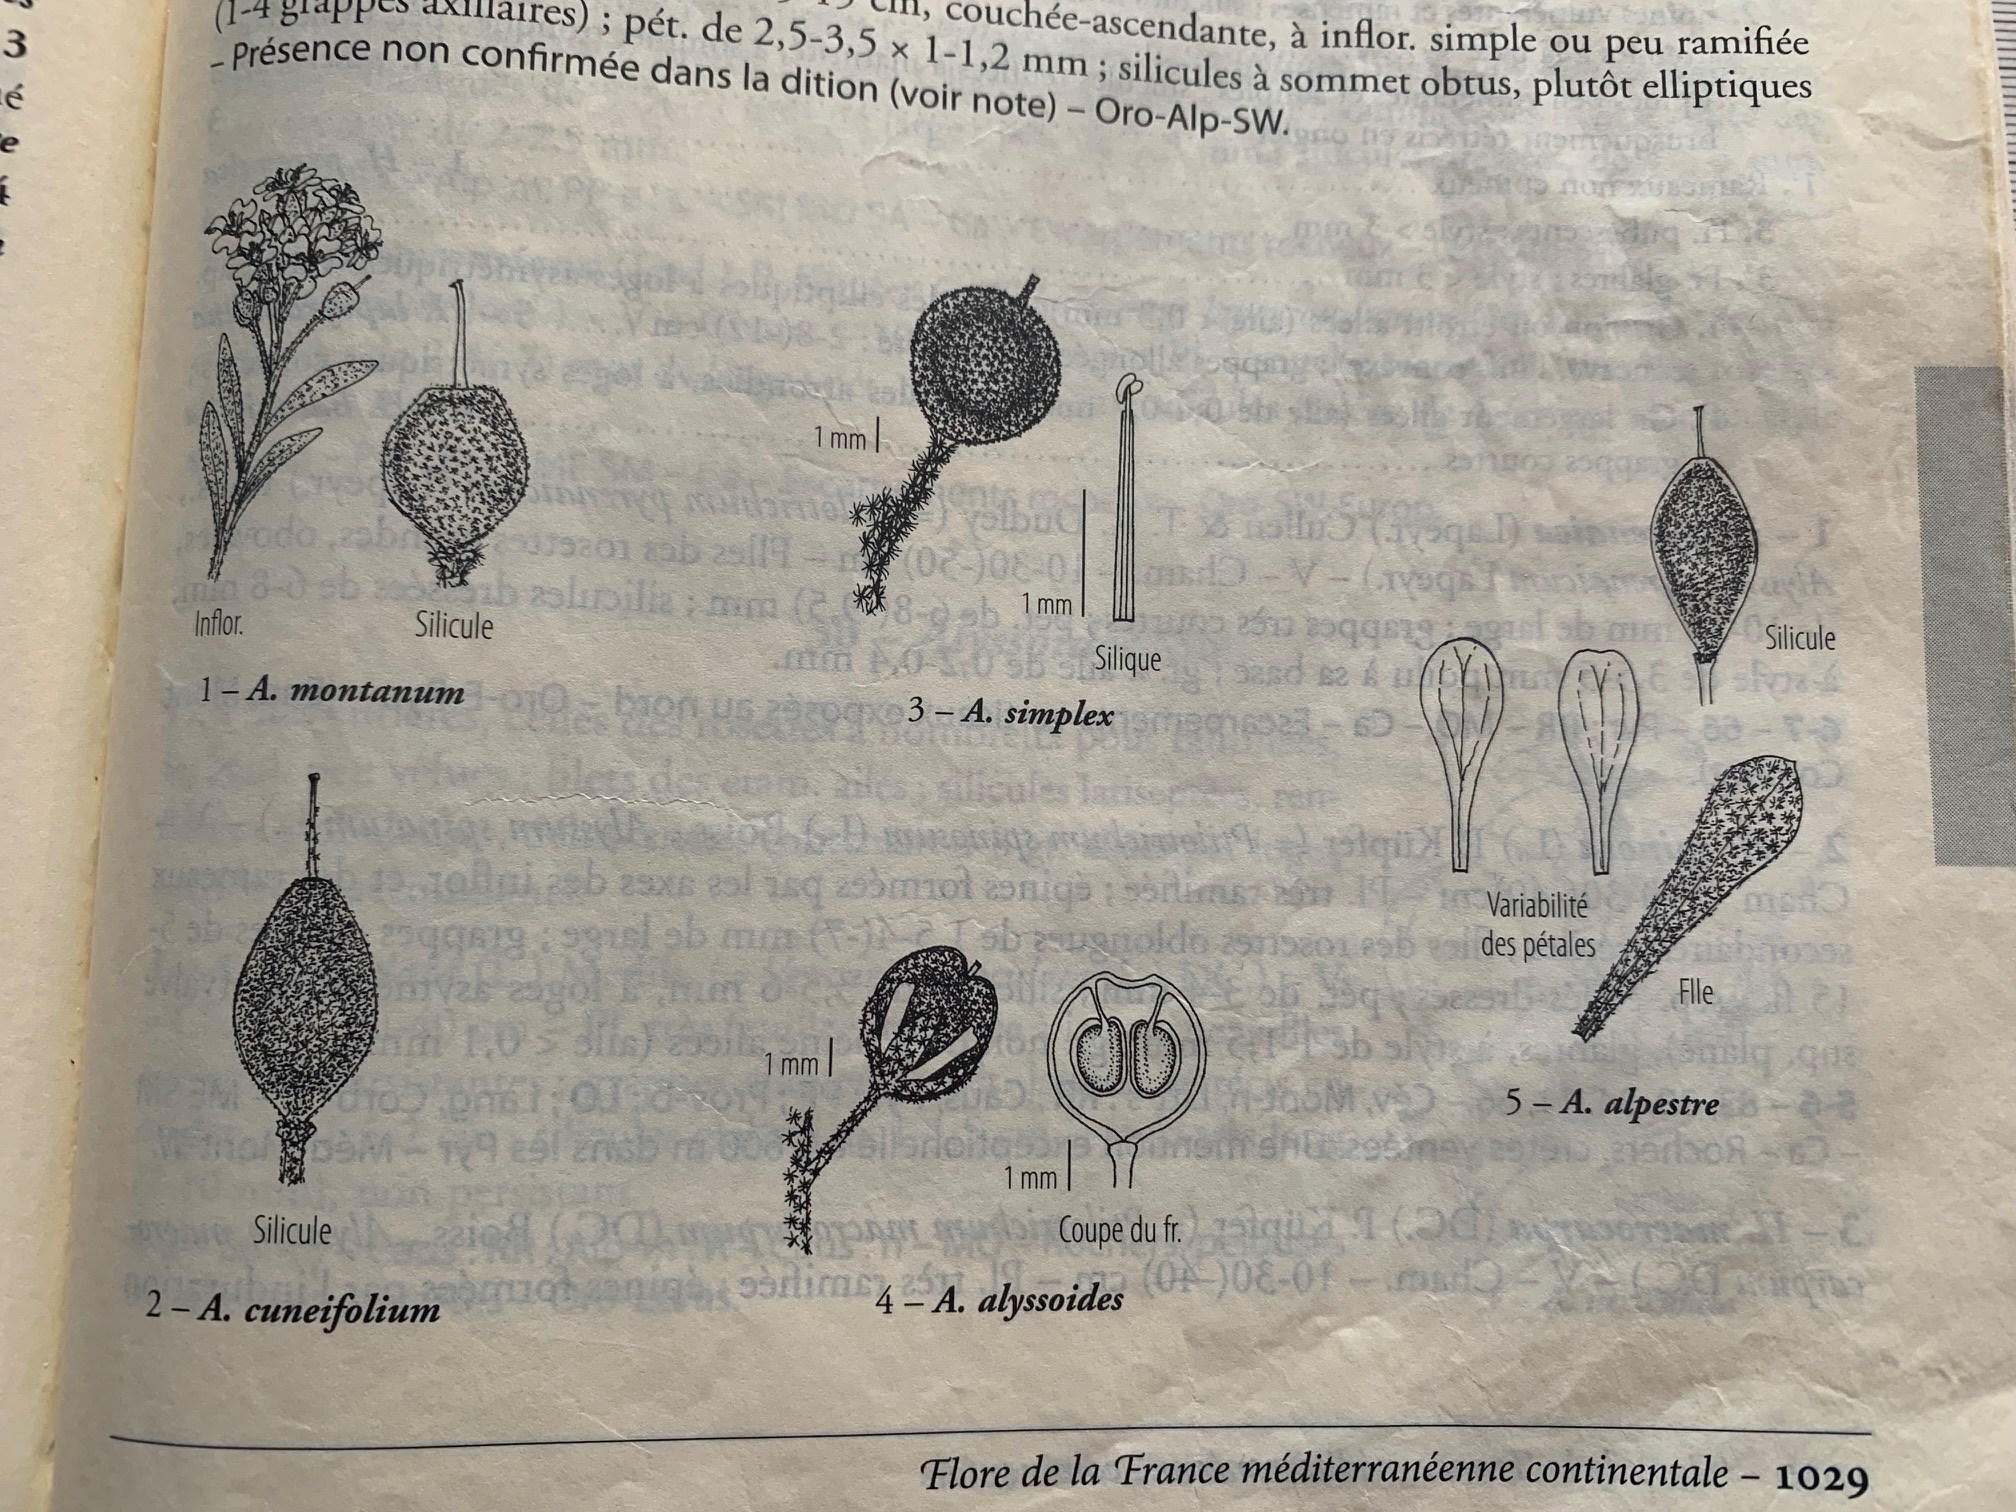 (1-4 grappes axillaires) ; pét. de 2,5-3,5 × 1-1,2 mm ; silicules à sommet obtus, plutôt elliptiques
cm, couchée-ascendante, à inflor. simple ou peu ramifiée
– Présence non confirmée dans la dition (voir note) – Oro-Alp-SW.
1 mm
1 mm
Inflor.
Silicule
Silique
Silicule
1 – A. montanum
3 – A. simplex
Variabilité
des pétales
Flle
1 mm
5 – A. alpestre
1 mm
Silicule
Coupe du fr.
2 – A. cuneifolium
4 – A. alyssoides
Flore de la France méditerranéenne continentale – 1029
3